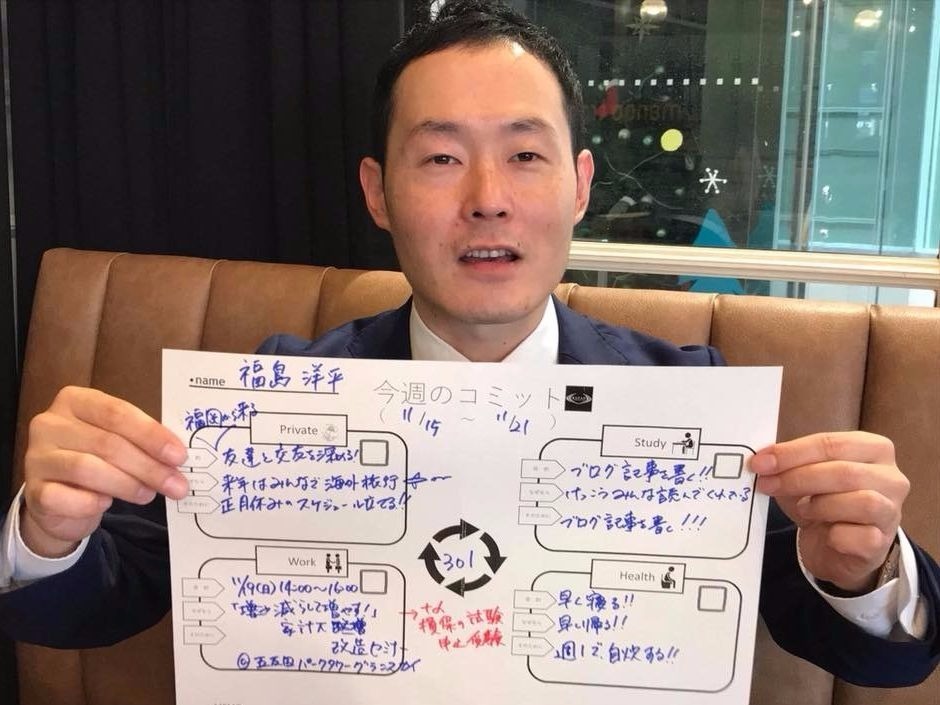 •name 福島 洋平
今週のコミット
( 11/15 ~ 11/21 )
福岡から来る
Private
友達と交友を深める!
来年はみんなで海外旅行
正月休みのスケジュール立てる!!
Study
ブログ記事を書く!!
けっこうみんな読んでくれてる
ブログ記事を書く!!!
301
Work
11/19(日) 14:00〜16:00
減らして増やす!」
家計大
改造セミナー
@五反田パークタワーグランスカイ
→+α
損保の試験
申込 受験
Health
早く寝る!!
早い帰る!!
週1で自炊する!!